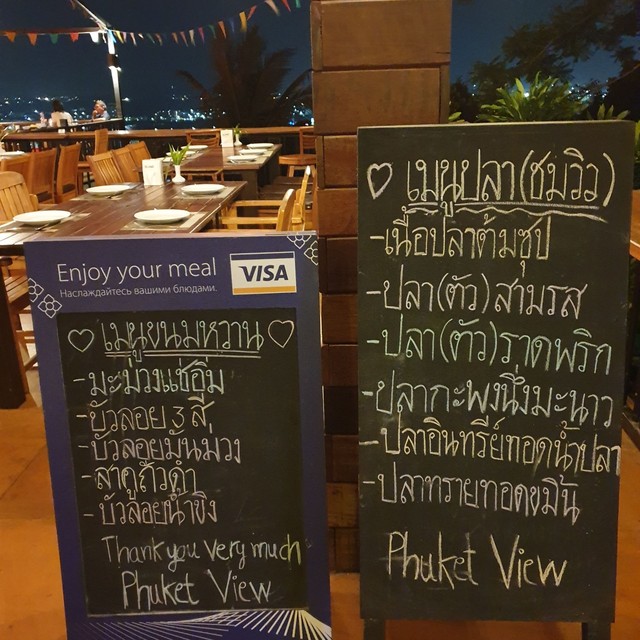 Enjoy your meal
Наслаждайтесь вашими блюдами.
VISA
เมนูขนมหวาน
-มะม่วงแช่อิ่ม
-บัวลอย 3 สี
-บัวลอยมันม่วง
-สาคูถั่วดำ
-บัวลอยน้ำขิง
Thank you very much
Phuket View
เมนูปลา(ชมวิว)
-เนื้อปลาต้มซุป
-ปลา(ตัว)สามรส
-ปลา(ตัว)ราดพริก
-ปลากะพงนึ่งมะนาว
-ปลาอินทรีย์ทอดน้ำปลา
-ปลาทรายทอดขมิ้น
Phuket View